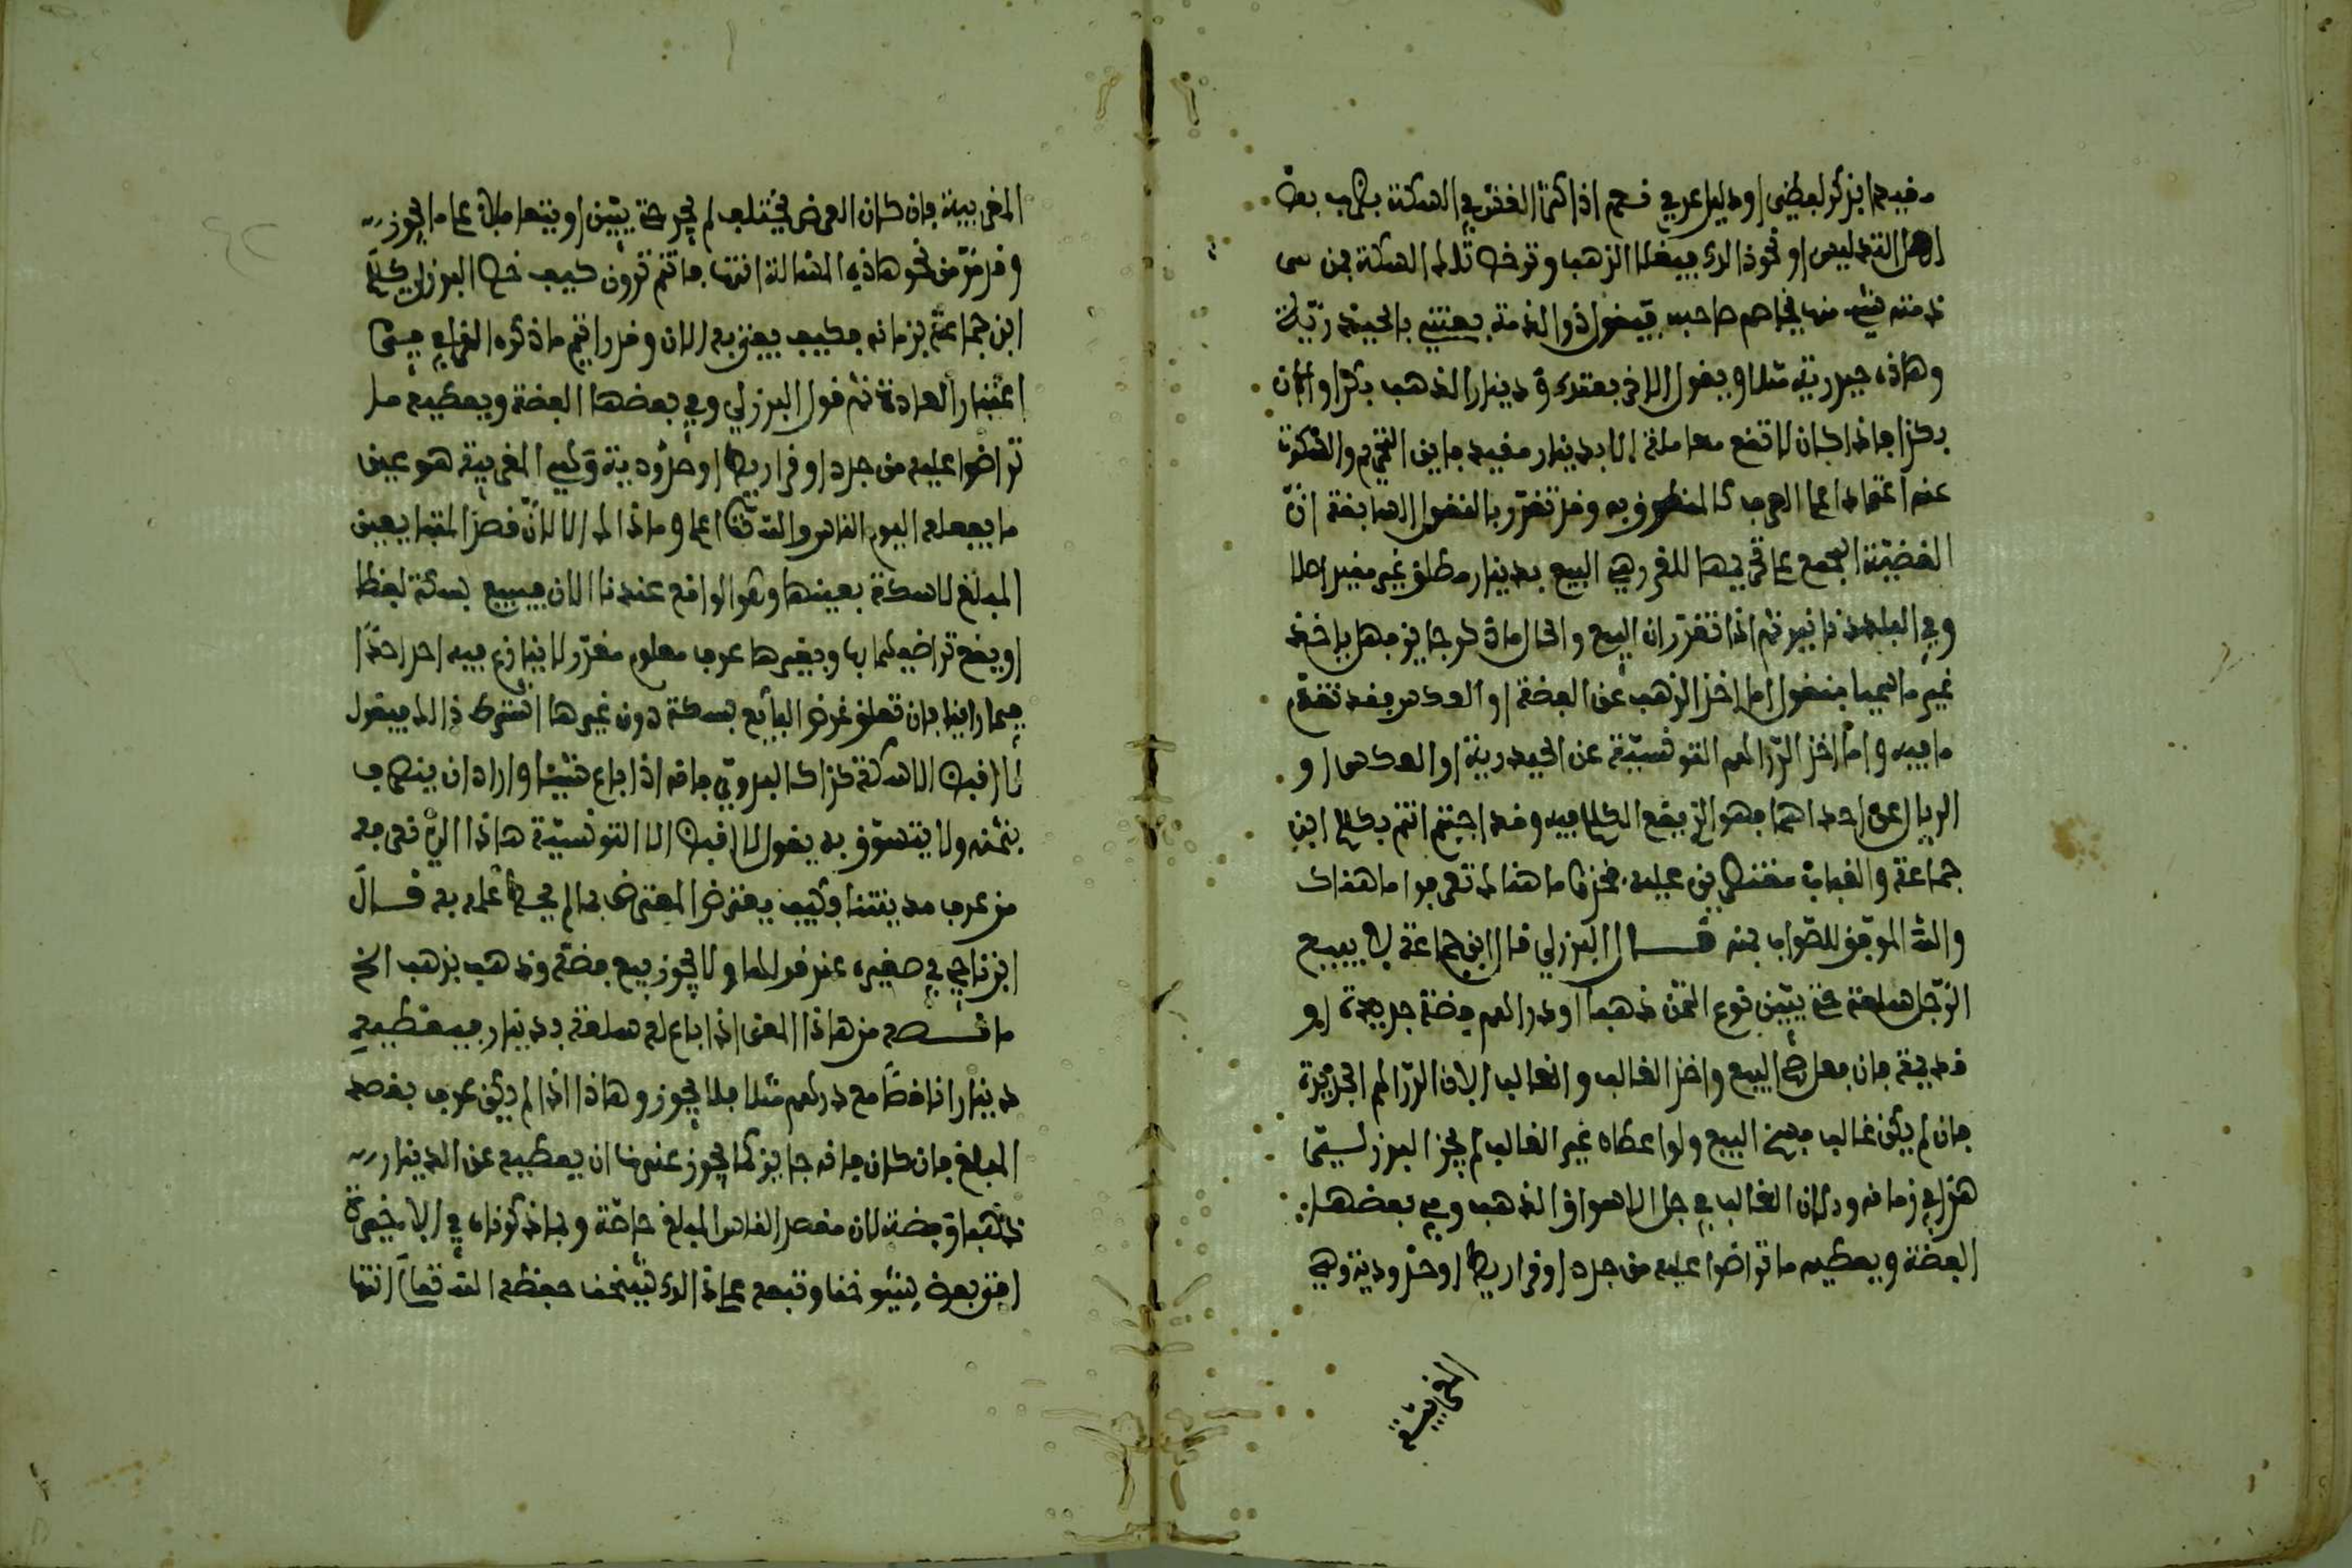 مقيدها بذكر لفظي او دليل عرفي نعم اذا كثر الغش في السكة بطرب بعض
اهل التدليس او نحو ذالك فيغلا الذهب وترخص تلك السكة فمن في
ذمته شيء منها يخاصم صاحبه فيقول ذو الذمة بعتني بالحيدرية
وهاذه حيدرية مثلا ويقول الاخر بعتك بدينار الذهب بكذا وان كان
بكذا فاذا كان لا تقع معاملة الا بدينار مقيد فاين التحريم والسكوت
عنه اعتمادا على العرف كالمنطوق به وقد تقرر بالنقول السابقة انّ
القضية المجمع على تحريمها للغرر هي البيع بدينار مطلق غير مقيد اصلا
وفي البلد دنانير ثم اذا تقرر ان البيع والحال ما ذكر جايز فهل ياخذ
غير ما سميا فنقول اما اخذ الذهب عن الفضة او العكس فقد تقدم
ما فيه واما اخذ الدراهم التونسية عن الحيدرية او العكس او
الريال عن احداهما فهو الذي يقع الكلام فيه وقد اجبتم انتم بكلام ابن
جماعة والقباب مقتصرين عليه فخذها ما هنالك تعرفوا ما هناك
والله الموفق للصواب بمنه قال البرزلي قال ابن جماعة لا يبيع
الرجل سلعة حتى يبين نوع الثمن ذهبا او دراهم فضة جديدة او
قديمة فان فعل صح البيع واخذ الغالب والغالب الان الدراهم الجديدة
فان لم يكن غالب فسخ البيع ولو اعطاه غير الغالب لم يجز البرزلي
هذا في زمانه وكان الغالب في جل الاسواق الذهب وفي بعضها
الفضة ويعطيه ما تراضوا عليه من جدد او قراريط او حندوسية وهي
المغربية
المغربية فان كان العرض يختلف لم يجز حتى يبين او يتعاملان على ما يجوز
وقد مر من نحو هاذه المسالة انتهى فانتم ترون كيف خص البرزلي كلام
ابن جماعة بزمانه فكيف يفتى به الان وقد رايتم ما ذكره القرافي في
اعتبار العادة ثم قول البرزلي وفي بعضها الفضة ويعطيه ما
تراضوا عليه من جدد او قراريط او حندوسية وهي المغربية هو عين
ما يفعله اليوم الناس والله تعالى اعلم وما ذالك الا لانّ قصد المتبايعين
المبلغ لا سكة بعينها وهو الواقع عندنا الان فيبيع بسكة لفظا
او يقع تراضيهما بها وبغيرها عرف معلوم مقرر لا ينازع فيه احد احدا
فيما راينا فان تعلق غرض البايع بسكة دون غيرها اشترط ذالك فيقول
لا اقبض الا سكة كذا كالبدوي فانه اذا باع شيئا واراد ان ينصرف
بثمنه ولا يتسوق به يقول لا اقبض الا التونسية هاذا الذي نعرفه
من عرف مدينتنا وكيف يعترض المعترض بما لم يحط علمه به قال
ابن ناجي في صغيره عند قولها ولا يجوز بيع فضة وذهب بذهب الخ
ما نصه من هاذا المعنى اذا باع له سلعة بدينار فيعطيه
دينارا ناقصا مع درهم مثلا فلا يجوز وهاذا اذا لم يكن عرف بقصد
المبلغ فان كان فانه جايز كما يجوز عندنا ان يعطيه عن الدينار
ذهبا وفضة لان مقصد الناس المبلغ خاصة وما ذكرناه في الاخيرة
افتى بعض شيوخنا وتبعه على ذالك شيخنا حفظه الله تعالى انتهى